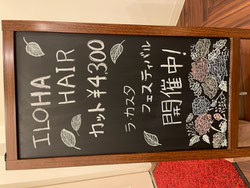 ILOHA
HAIR
カット¥4,300
ラ・カスタ
フェスティバル
開催中!